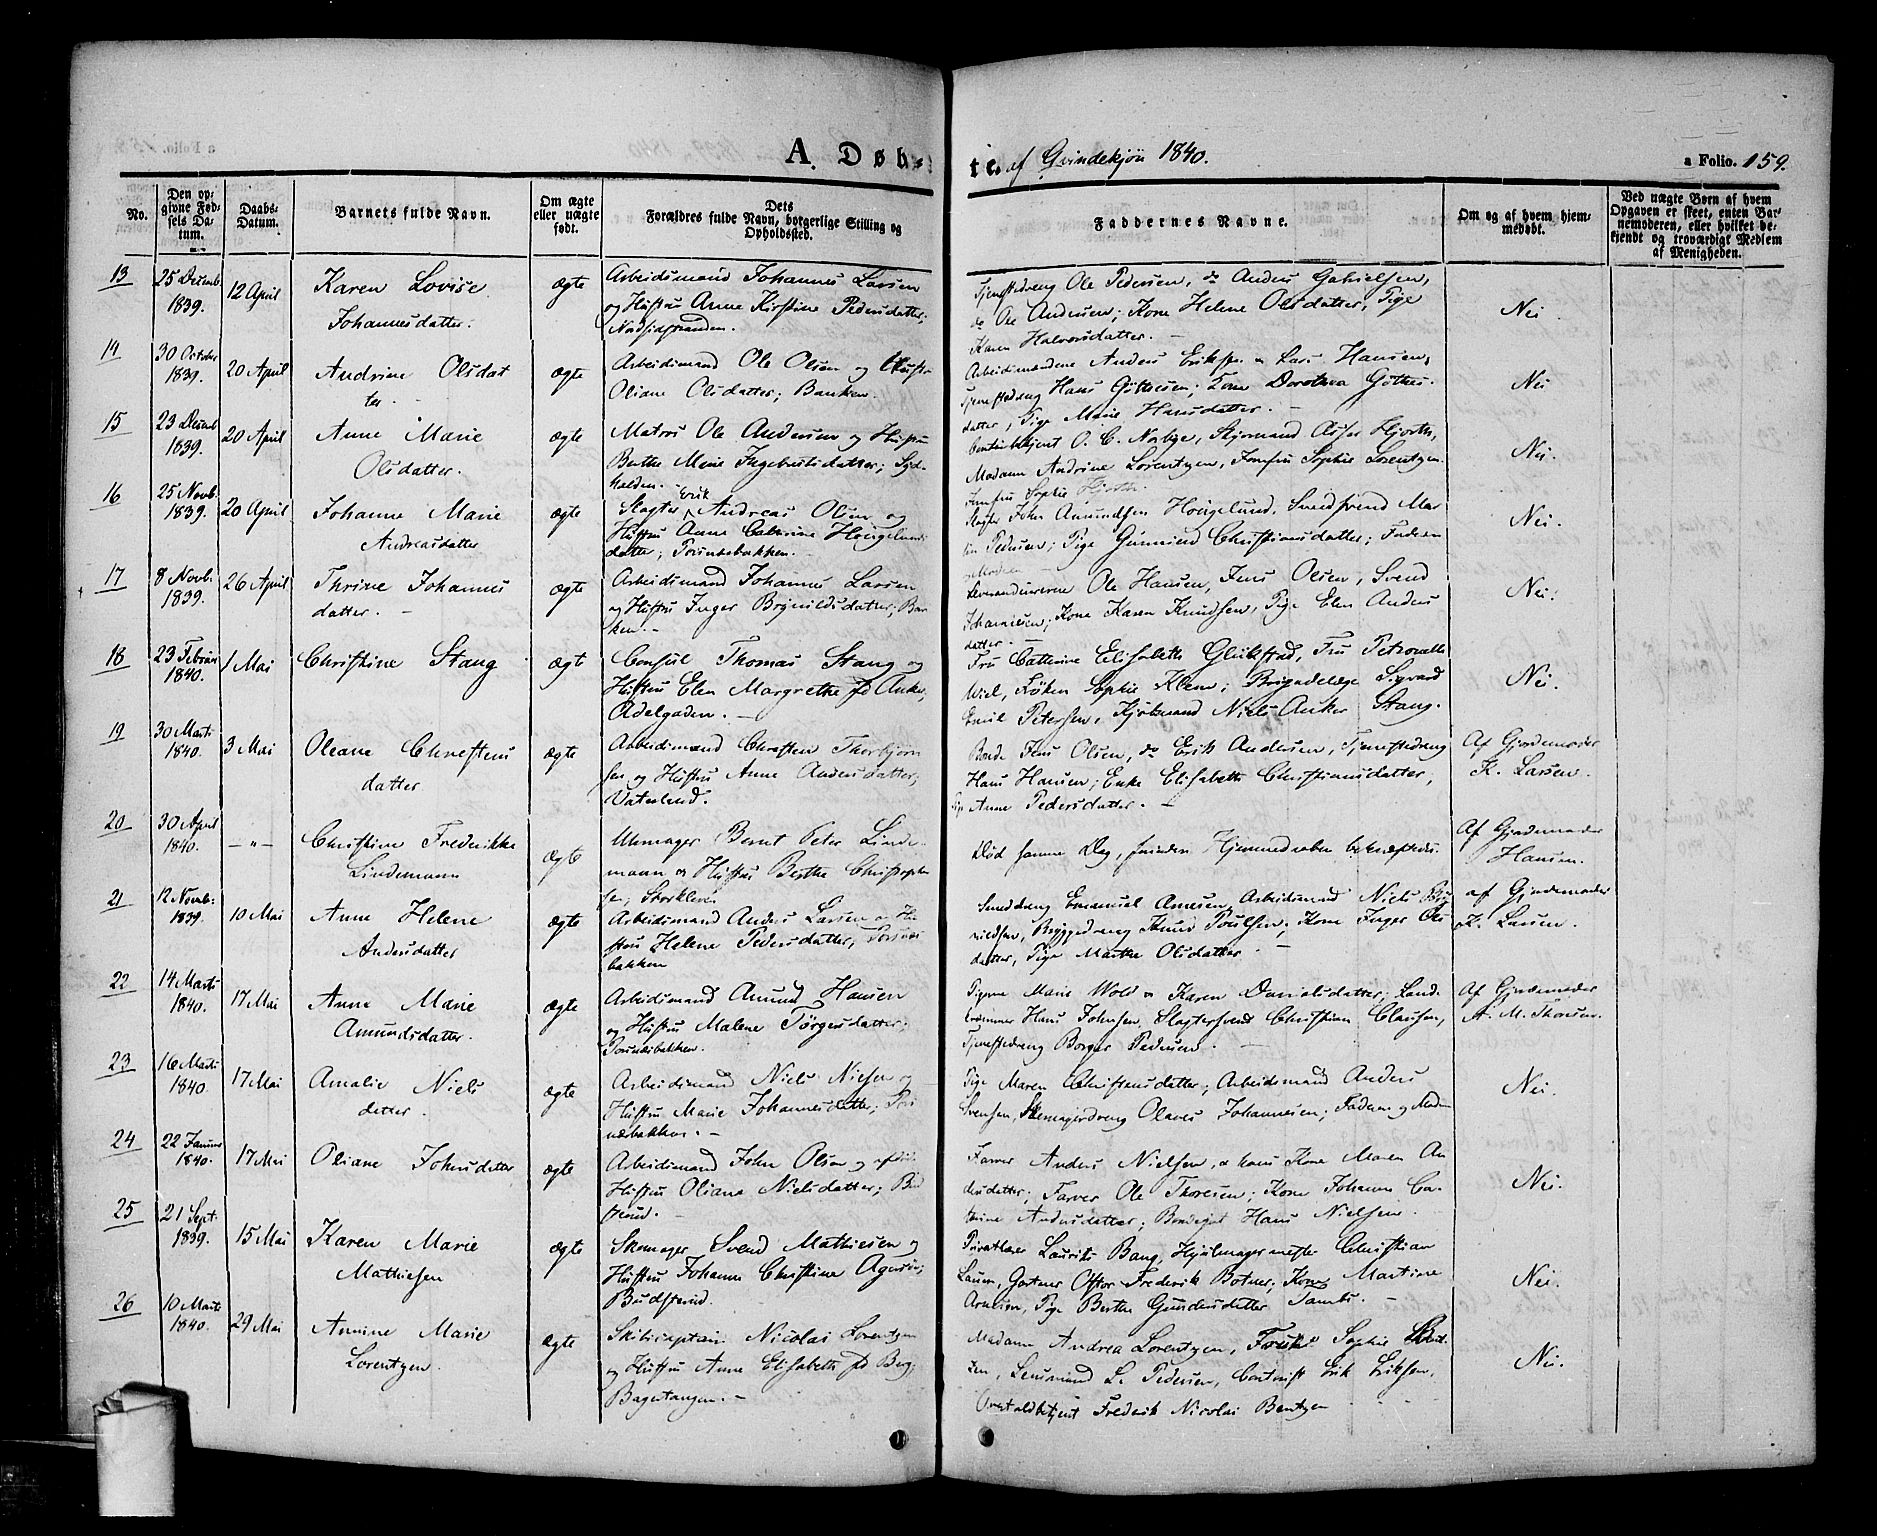 A. Døb-
te af Qvindekjøn 1840.
a Folio. 159.
No.
Den op-
givne Fød-
sels Da-
tum.
Daabs-
Datum.
Barnets fulde Navn.
Om ægte
eller uægte
født.
Dets
Forældres fulde Navn, borgerlige Stilling og
Opholdssted.
Faddernes Navne.
Om og af hvem hjem-
medøbt.
Ved uægte Børn af hvem
Opgaven er skeet, enten Bar-
nemoderen, eller hvilket be-
kjendt og troværdigt Medlem
af Menigheden.
13
25 Decemb.
1839.
12 April
Karen Lovise
Johannesdatter.
ægte
Arbeidsmand Johannes Larsen
og Hustru Anne Kirstine Pedersdatter;
Tjenestedreng Ole Pedersen, do Anders Gabrielsen,
do Ole Andersen; Kone Helene Olsdatter, Pige
Karen Halvorsdatter. -
Nei.
14
30 October
1839.
20 April
Andrine Olsdat
ter.
ægte
Arbeidsmand Ole Olsen og Hustru
Oliane Olsdatter; Banken.
Arbeidsmændene Anders Hansen,
Tjenestedreng Hans Dorothea
datter, Pige Marie Hansdatter. -
Nei
15
23 Decemb
1839.
20 April
Anne Marie
Olsdatter.
ægte
Matros Ole Andersen og Hustru
Berthe Marie Ingebretsdatter; Syd-
halden. -
O. C. Norbye, Styrmand Hjorth,
Madam Andrine Lorentzen, Jomfru Sophie Lorentzen
Jomfru Sophie Hjorth.
Nei.
16
25 Novb.
1839.
20 April
Johanne Marie
Andreasdatter
ægte
Slagter Erik Andreas Olsen og
Hustru Anne Cathrine Hougelunds
datter;
Slagter John Amundsen Hougelund, Svend Mar
tin Pedersen; Pige Christiansdatter; Faderen
Nei.
17
8 Novb.
1839.
26 April
Thrine Johannes
datter. -
ægte
Arbeidsmand Johannes Larsen
og Hustru Inger Brynildsdatter; Ban
ken. -
Ole Hansen, Jens Olsen, Svend
Johannesen; Kone Karen Knudsen, Pige Elen Anders
datter. -
Nei.
18
23 Februar
1840.
1 Mai
Christine Stang
ægt
Consul Thomas Stang og
Hustru Elen Margrethe fd Anker,
Adelgaden. -
Fru Catherine Elisabeth Glükstad, Fru Petronelle
Wiel, Frøken Sophie Klem; Brigadelæge Sigvard
Emil Petersen, Kjøbmand Niels Anker Stang.
Nei.
19
30 Marts
1840.
3 Mai
Oleane Christens
datter
ægte
Arbeidsmand Christen Thorbjørn
sen og Hustru Anne Andersdatter;
Vaterland.
Bonde Jens Olsen, do Erik Andersen, Tjenestedreng
Hans Hansen; Enke Elisabeth Christiansdatter,
Pige Anne Pedersdatter. -
Af Gjordemoder
K. Larsen.
20
30 April
1840.
- " -
Christine Frederikke
Lindemann
ægte
Uhrmager Bernt Peter Linde-
mann og Hustru Berthe Christophe
sen;
Død samme Dag, førinden Hjemmedaaben bekræftedes.
Af Gjordemoder
Hansen.
21
12 Novb.
1839.
10 Mai
Anne Helene
Andersdatter
ægte
Arbeidsmand Anders Larsen og Hu-
stru Helene Pedersdatter;
bakken
Emanuel Arnesen, Arbeidsmand Niels Bry
nildsen, Bryggedreng Knud Poulsen; Kone Inger Ols
datter, Pige Marthe Olsdatter. -
af Gjordemoder
K. Larsen.
22
14 Marts
1840.
17 Mai
Anne Marie
Amundsdatter.
ægte
Arbeidsmand Amund Hansen
og Hustru Malene Tørgersdatter;
Pigerne Marie Wold og Karen Danielsdatter; Land-
kræmmer Hans Johnsen, Slagtersvend Christian Clausen,
Tjenestedreng Borger Pedersen. -
Af Gjordemoder
A. M. Thoresen.
23
16 Marts
1840
17 Mai
Amalie Niels
datter.
ægte
Arbeidsmand Niels Nilsen og
Hustru Marie Johannesdatter;
Pige Maren Christensdatter; Arbeidsmand Anders
Svensen, Skomagerdreng Olaves Johannesen; Faderen og Moderen
Nei.
24
22 Januar
1840.
17 Mai
Oliane Johnsdatter
ægte
Arbeidsmand John Olsen og afdøde
Hustru Oliane Nielsdatter; Bud
sterud. -
Farver Anders Nielsen, og hans Kone Maren An
dersdatter; Farver Ole Thoresen; Kone Johanne Ca-
thrine Andersdatter; Hans Nielsen.
Nei.
25
21 Sept.
1839.
15 Mai
Karen Marie
Mathiesen
ægte
Skomager Svend Mathiesen og
Hustru Johanne Christine Agerøe;
Budsterud.
Privatlærer Laurits Bang, Hjulmagermester Christian
Larsen, Gartner Frederik Botner, Kone Martine
Arnesen, Pige Berthe Gundersdatter
Nei.
26
10 Marts
1840.
29 Mai
Annine Marie
Lorentzen.
ægte
Skibscaptain Nicolai Lorentzen
og Hustru Anne Elisabeth fd Berg;
Bagestangen. -
Madame Andrea Lorentzen, Sophie
L. Pedersen, Contorist Erik Eriksen,
Frederik Nicolai Bentzen
Nei.